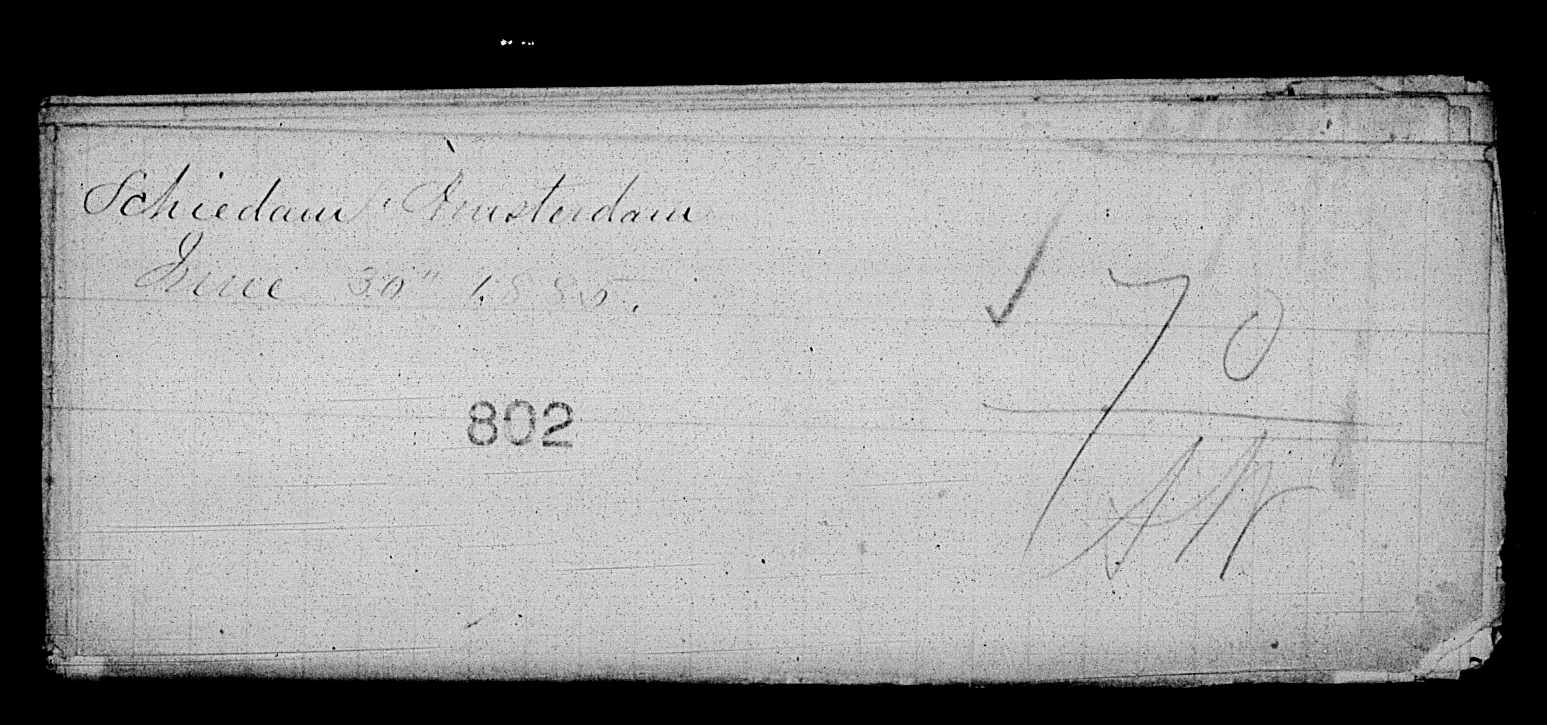 Schiedam Amsterdam
June 30" 1885.
70
802